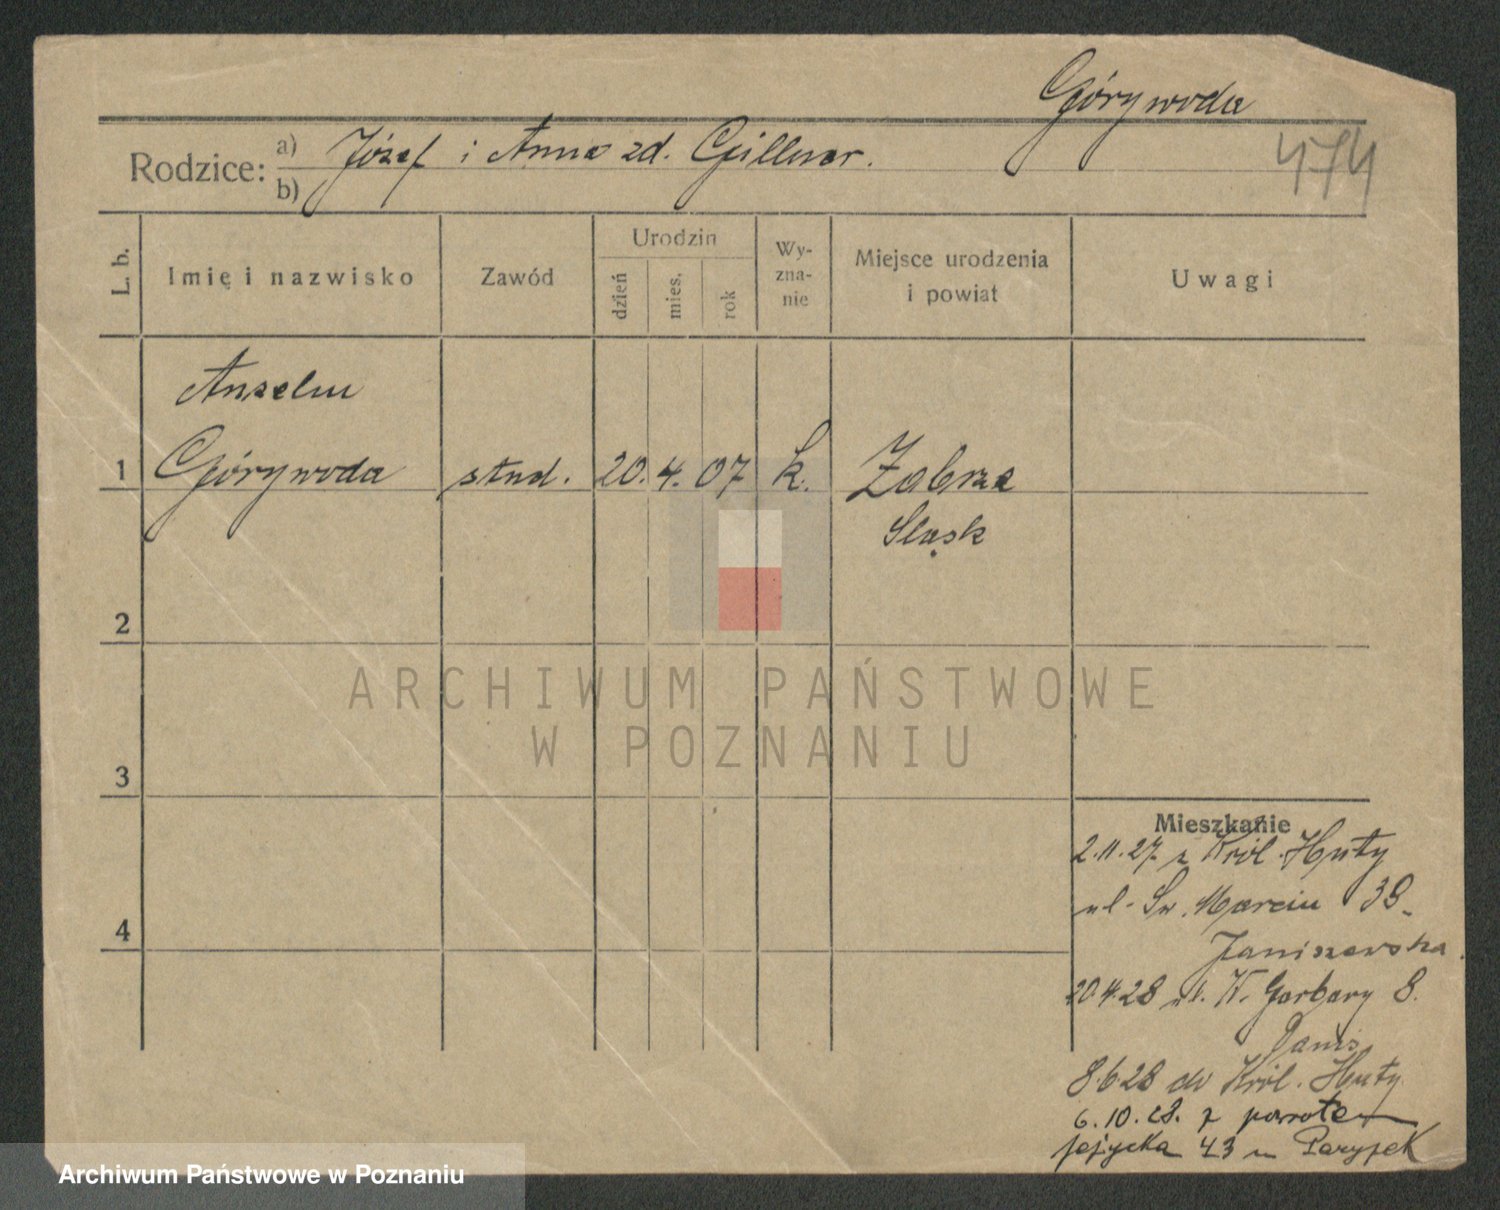 Górywoda
474
Rodzice: a) Józef i Anna zd. Gillner.
b)
L. b.
Imię i nazwisko
Zawód
Urodzin
dzień
mies.
rok
Wy-
zna-
nie
Miejsce urodzenia
i powiat
Uwagi
Anzelm
1 Górywoda stud. 20. 4. 07 k. Zabrze
Śląsk
2
ARCHIWUM PAŃSTWOWE
W POZNANIU
3
Mieszkanie
2.11.27. z Król. Huty
ul. Św. Marcin 39
4
Janiszewska.
20.4.28 ul. W. Garbary 8.
Danis
8.6.28 do Król. Huty
6.10.28. z powrotem
43 m
Archiwum Państwowe w Poznaniu